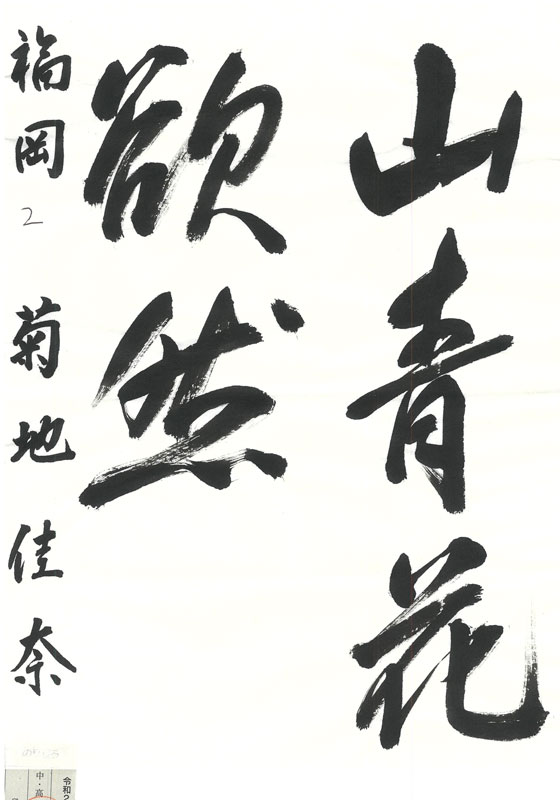 山青花
欲然
福岡 2 菊地佳奈
令和2
中・高